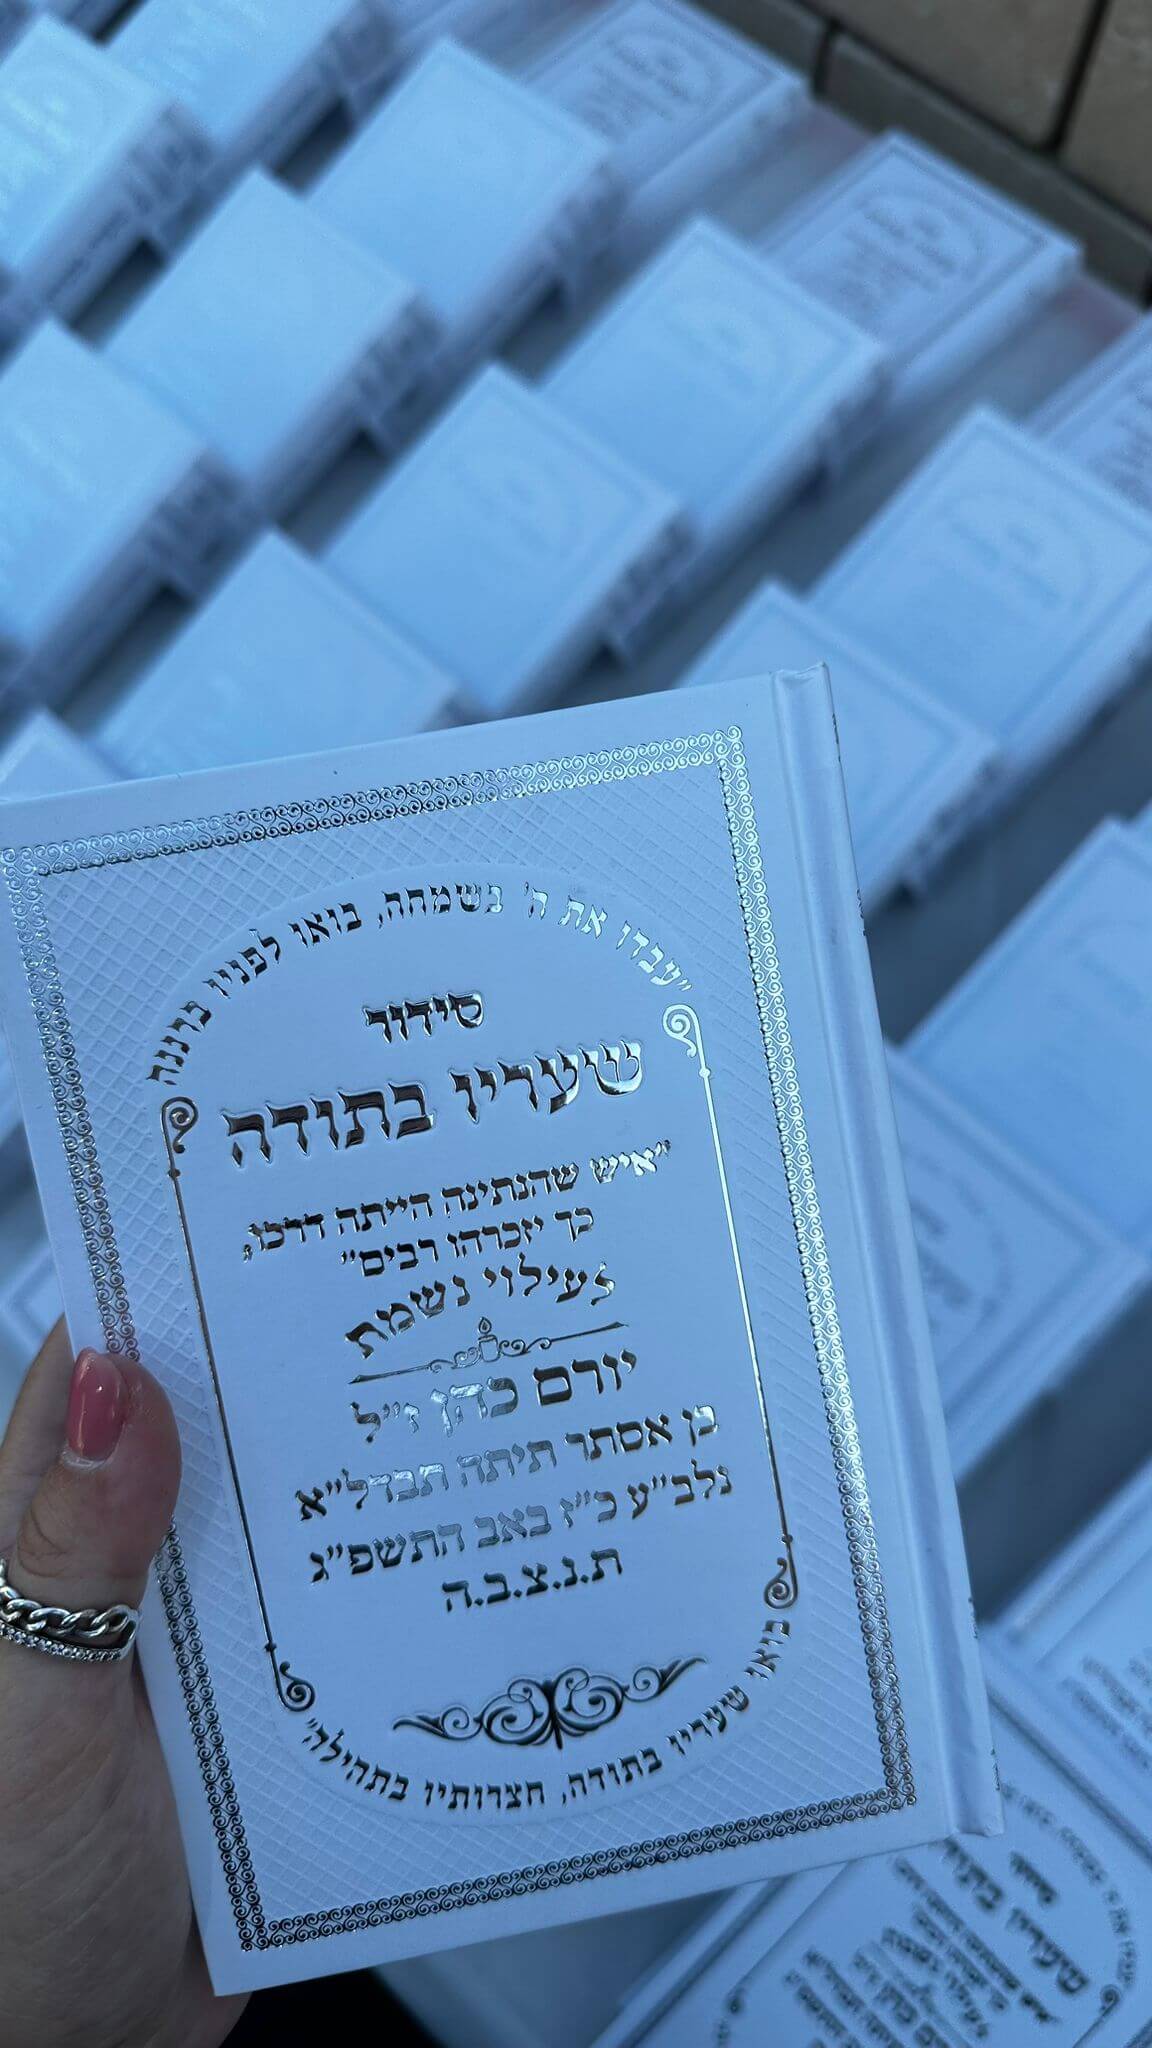 "עבדו את ה' בשמחה, בואו לפניו ברננה
סידור
שעריו בתודה
"איש שהנתינה הייתה דרכו,
כך יזכרהו רבים"
לעילוי נשמת
יורם כהן ז"ל
בן אסתר תיתה תבדל"א
נלב"ע כ"ז באב התשפ"ג
ת.נ.צ.ב.ה
בואו שעריו בתודה, חצרותיו בתהילה"